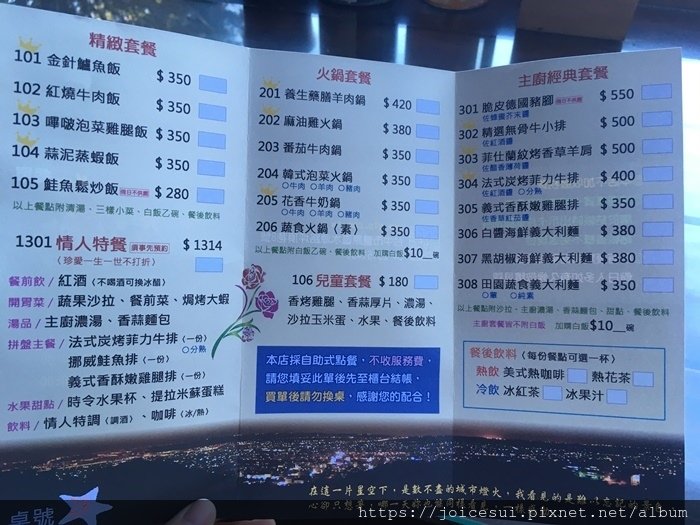 精緻套餐
101 金針鱸魚飯 $350
102 紅燒牛肉飯 $350
103 嗶啵泡菜雞腿飯 $350
104 蒜泥蒸蝦飯 $350
105 鮭魚鬆炒飯 假日不供應 $280
以上餐點附清湯、三樣小菜、白飯乙碗、餐後飲料
1301 情人特餐 須事先預約 $1314
(珍愛一生一世不打折)
餐前飲/ 紅酒(不喝酒可換冰醋)
開胃菜/ 蔬果沙拉、餐前菜、焗烤大蝦
湯品/ 主廚濃湯、香蒜麵包
拼盤主餐/ 法式炭烤菲力牛排(一份)
○分熟
挪威鮭魚排(一份)
義式香酥嫩雞腿排(一份)
水果甜點/ 時令水果杯、提拉米蘇蛋糕
飲料/ 情人特調(調酒)、咖啡(冰/熱)
桌號
火鍋套餐
201 養生藥膳羊肉鍋 $420
202 麻油雞火鍋 $380
203 番茄牛肉鍋 $350
204 韓式泡菜火鍋 $350
○牛肉 ○羊肉 ○豬肉
205 花香牛奶鍋 $350
○牛肉 ○羊肉 ○豬肉
206 蔬食火鍋(素) $350
以上餐點附白飯乙碗、餐後飲料 加購白飯$10__碗
106 兒童套餐 $180
香烤雞腿、香蒜厚片、濃湯、
沙拉玉米蛋、水果、餐後飲料
本店採自助式點餐，不收服務費，
請您填妥此單後先至櫃台結帳，
買單後請勿換桌，感謝您的配合！
主廚經典套餐
301 脆皮德國豬腳 假日不供應 $550
佐蜂蜜芥末醬
302 精選無骨牛小排 $500
佐紅酒醬
303 菲仕蘭紋烤香草羊肩 $500
佐醋香薄荷醬
304 法式炭烤菲力牛排 $400
佐紅酒醬 ○分熟
305 義式香酥嫩雞腿排 $350
佐香草紅茄醬
306 白醬海鮮義大利麵 $380
307 黑胡椒海鮮義大利麵 $380
308 田園蔬食義大利麵 $350
○葷 ○純素
以上餐點附沙拉、主廚濃湯、香蒜麵包、甜點、餐後飲料
主廚套餐皆不附白飯 加購白飯$10__碗
餐後飲料(每份餐點可選一杯)
熱飲 美式熱咖啡 熱花茶
冷飲 冰紅茶 冰果汁
在這一片星空下，是數不盡的城市燈火，我看見的是難以忘記
https://joicesul.pixnet.net/album